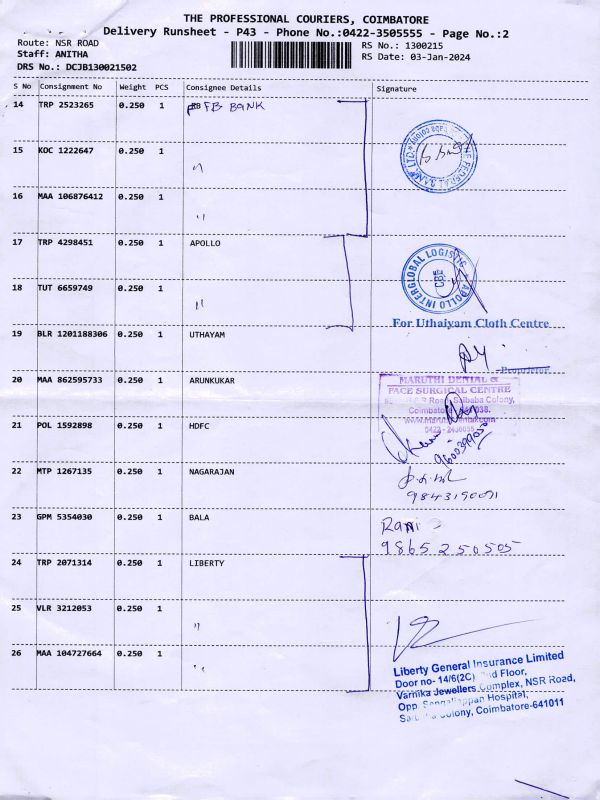 THE PROFESSIONAL COURIERS, COIMBATORE
Delivery Runsheet - P43 - Phone No.:0422-3505555 - Page No.:2
Route: NSR ROAD
RS No.: 1300215
Staff: ANITHA
RS Date: 03-Jan-2024
DRS No.: DCJB130021502
S No Consignment No Weight PCS Consignee Details Signature
14 TRP 2523265 0.250 1 FB BANK
15 KOC 1222647 0.250 1 "
16 MAA 106876412 0.250 1 "
17 TRP 4298451 0.250 1 APOLLO
APOLLO INTERGLOBAL LOGISTIC
CBE
18 TUT 6659749 0.250 1 "
For Uthaiyam Cloth Centre
19 BLR 1201188306 0.250 1 UTHAYAM
Proprietor
20 MAA 862595733 0.250 1 ARUNKUKAR
MARUTHI DENTAL &
FACE SURGICAL CENTRE
Road, Saibaba Colony,
21 POL 1592898 0.250 1 HDFC
0422 - 2430055
9600399050
22 MTP 1267135 0.250 1 NAGARAJAN
9843190071
23 GPM 5354030 0.250 1 BALA
Rani
9865250505
24 TRP 2071314 0.250 1 LIBERTY
25 VLR 3212053 0.250 1 "
26 MAA 104727664 0.250 1 "
Liberty General Insurance Limited
Door no- 14/6(2C) 2nd Floor,
Varnika Jewellers Complex, NSR Road,
Opp. Hospital,
Colony, Coimbatore-641011